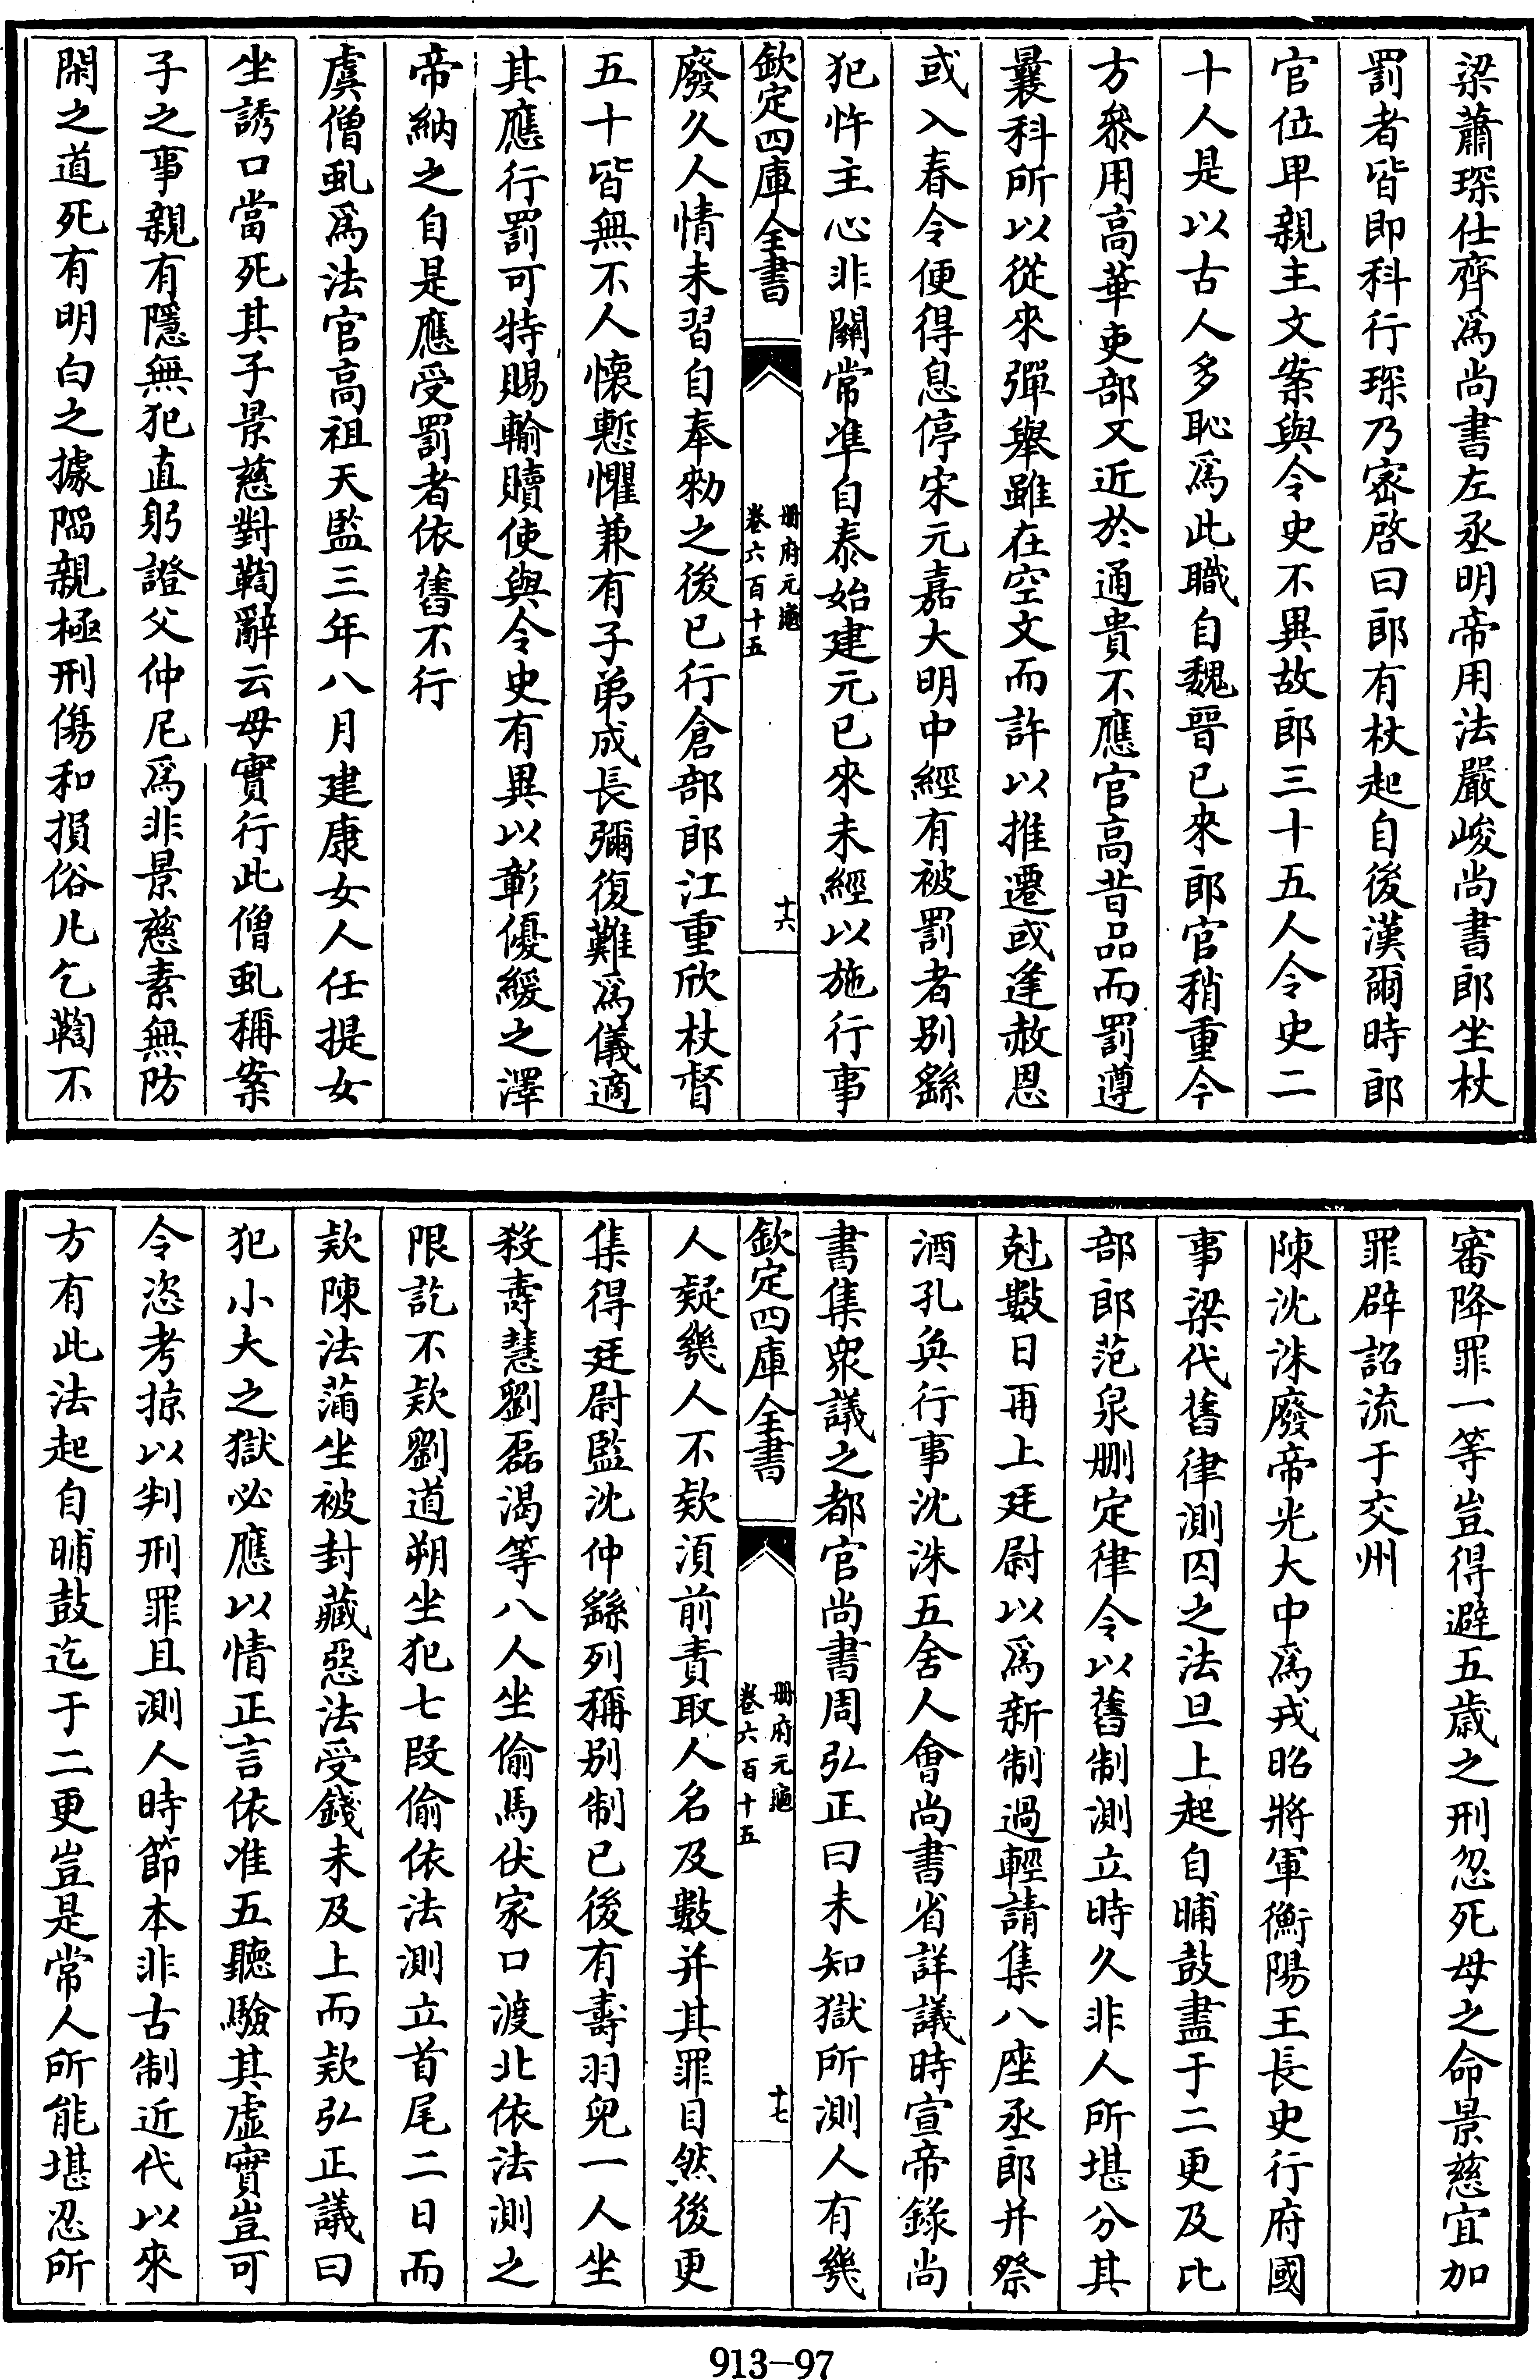 梁蕭琛仕齊為尚書左丞明帝用法嚴峻尚書郎坐杖
罰者皆即科行琛乃密啓曰郎有杖起自後漢爾時郎
官位甲親主文案與令史不異故郎三十五人令史二
十人是以古人多恥為此職自魏晉已來郎官稍重今
方叅用高華吏部又近於通貴不應官高昔品而罰遵
曩科所以從來彈舉雖在空文而許以推遷或逢赦恩
或入春令便得息停宋元嘉大明中經有被罰者别繇
犯忤主心非關常準自泰始建元已來未經以施行事
欽定四庫全書
冊府元龜
卷六百十五
十六
廢久人情未習自奉勑之後已行倉部郎江重欣杖督
五十皆無不人懷慙懼兼有子弟成長彌復難為儀適
其應行罰可特賜輸贖使與令史有異以彰優緩之澤
帝納之自是應受罰者依舊不行
虞僧虬為法官高祖天監三年八月建康女人任提女
坐誘口當死其子景慈對鞫辭云母實行此僧虬稱案
子之事親有隱無犯直躬證父仲尼為非景慈素無防
閑之道死有明白之據陷親極刑傷和損俗凡乞鞫不
審降罪一等豈得避五歲之刑忽死母之命景慈宜加
罪辟詔流于交州
陳沈洙廢帝光大中為戎昭將軍衡陽王長史行府國
事梁代舊律測囚之法旦上起自晡鼓盡于二更及比
部郎范泉刪定律令以舊制測立時久非人所堪分其
尅數日再上廷尉以為新制過輕請集八座丞郎并祭
酒孔奐行事沈洙五舍人會尚書省詳議時宣帝錄尚
書集衆議之都官尚書周弘正曰未知獄所測人有幾
欽定四庫全書
冊府元龜
卷六百十五
十七
人疑幾人不欵湏前責取人名及數并其罪目然後更
集得廷尉監沈仲繇列稱别制已後有壽羽兒一人坐
殺壽慧劉磊渴等八人坐偷馬伏家口渡北依法測之
限訖不欵劉道朔坐犯七叚偷依法測立首尾二日而
欵陳法蒲坐被封藏惡法受錢未及上而欵弘正議曰
犯小大之獄必應以情正言依准五聽驗其虛實豈可
令恣考掠以判刑罪且測人時節本非古制近代以來
方有此法起自晡鼓迄于二更豈是常人所能堪忍所
913-97